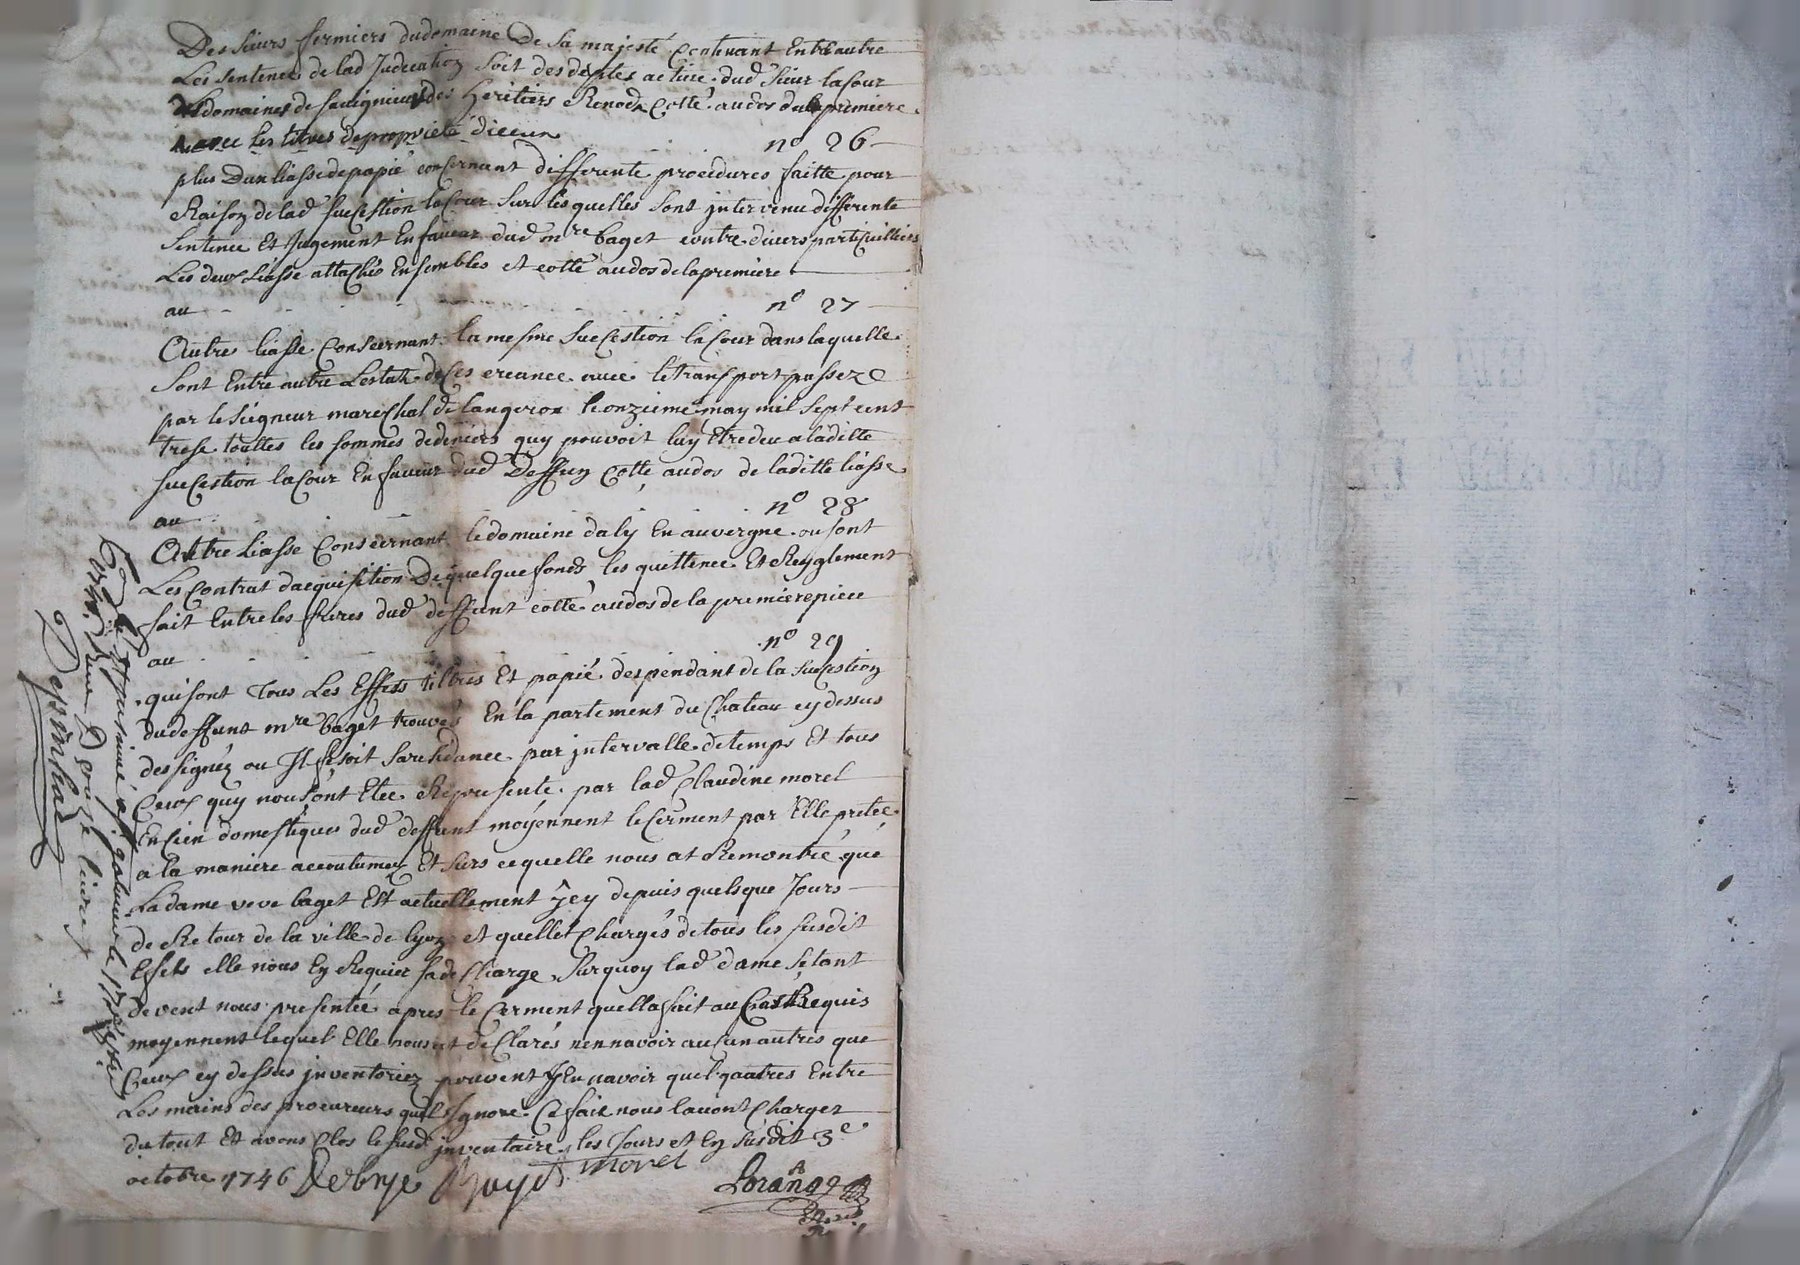 Des sieurs fermiers du domaine De sa majesté contenant Entre autre
Les sentences de lad Judication soit des dettes active dud sieur lacour
des domaines de savignieux des heretiers Renod cotté au dos de la premiere
avec les titres de propriété diceux n° 26
plus Dun liasse de papié consernant differente procedures faitte pour
Raison de lad sucestion lacour sur les quelles sont jntervenu differente
sentence Et Jugement En faveur dud mre baget contre divers particuilliers
Les deux liasse attachés Ensembles et cotté au dos de la premiere
au n° 27
Autres liasse Consernant la mesme sucestion lacour dans laquelle
sont Entre autre Lestat de ses creance avec le transport passez
par le seigneur marechal de langeron le onzieme may mil sept cent
trese touttes les sommes de deniers quy pouvoit luy Etre deu a laditte
sucestion lacour En faveur dud Deffun cotté au dos de laditte liasse
au n° 28
Autre liasse Consernant le domaine daly En auvergne ou sont
Les Contrat dacquisition De quelque fonds les quittence Et Reyglement
fait Entre les freres dud deffunt cotté au dos de la premiere piece
au n° 29
qui sont Tous Les Effets tiltres Et papié despendant de la sucestion
du deffunt mre baget trouvés En la partement du Chateau cy dessus
dessignéz ou Jl fesoit sa residance par jntervalle de temps Et tous
Ceux quy nous ont Etee Representé par lad Claudine morel
Encien domestiques dud deffunt moyennent le serment par Elle pretée
a la maniere accoutumez Et surs ce quelle nous at Remontré que
La dame veve baget Est actuellement jcy depuis quelsque Jours
de Retour de la ville de lyon et quellet Chargés de tous les susdit
Efets elle nous En Requier sa de Charge surquoy lad dame setant
devent nous presentée apres le serment quella fait au Cas Requis
moyennent lequel Elle nous at de Clarés nen navoir aucun autres que
Ceux cy dessus jnventoriez pouvent y En navoir quelqautres Entre
Les mains des procureurs quel Jgnore Ce fait nous lavont Charger
du tout Et avons Clos le susd jnventaire les Jours et En susdit 3e
octobre 1746 Debrye Bayet morel
Desvicha